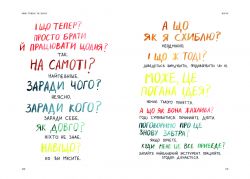 І ЩО ТЕПЕР?
ПРОСТО БРАТИ
Й ПРАЦЮВАТИ ЩОДНЯ?
ТАК.
НА САМОТІ?
НАЙПЕВНІШЕ.
ЗАРАДИ ЧОГО?
НЕЯСНО.
ЗАРАДИ КОГО?
ЗАРАДИ СЕБЕ.
ЯК ДОВГО?
НІХТО НЕ ЗНАЄ.
НАВІЩО?
БО ТИ МУСИШ.
А ЩО
ЯК Я СХИБЛЮ?
НЕОДМІННО.
І ЩО Ж ТОДІ?
МОЖЕ, ЦЕ
ПОГАНА ІДЕЯ?
А ЩО ЯК ВОНА ЖАХЛИВА?
ПОГОВОРИМО ПРО ЦЕ
ЗНОВУ ЗАВТРА?
КУДИ МЕНЕ ЦЕ ВСЕ ПРИВЕДЕ?